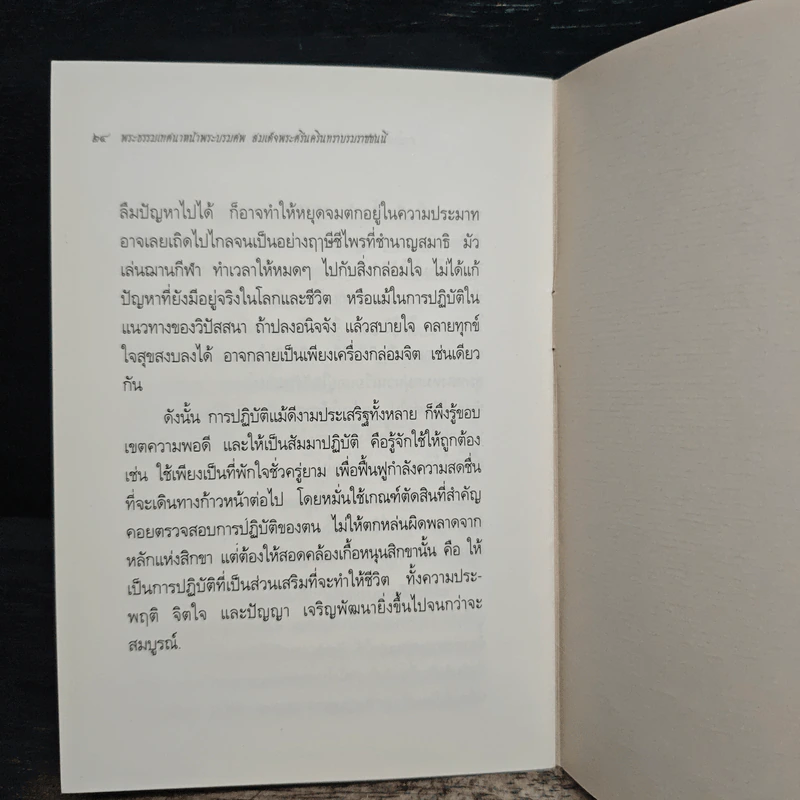 ๒๘ พระธรรมเทศนาหน้าพระบรมศพ สมเด็จพระศรีนครินทราบรมราชชนนี
ลืมปัญหาไปได้ ก็อาจทำให้หยุดจมตกอยู่ในความประมาท
อาจเลยเถิดไปไกลจนเป็นอย่างฤๅษีชีไพรที่ชำนาญสมาธิ มัว
เล่นฌานกีฬา ทำเวลาให้หมดๆ ไปกับสิ่งกล่อมใจ ไม่ได้แก้
ปัญหาที่ยังมีอยู่จริงในโลกและชีวิต หรือแม้ในการปฏิบัติใน
แนวทางของวิปัสสนา ถ้าปลงอนิจจัง แล้วสบายใจ คลายทุกข์
ใจสุขสงบลงได้ อาจกลายเป็นเพียงเครื่องกล่อมจิต เช่นเดียว
กัน
ดังนั้น การปฏิบัติแม้ดีงามประเสริฐทั้งหลาย ก็พึงรู้ขอบ
เขตความพอดี และให้เป็นสัมมาปฏิบัติ คือรู้จักใช้ให้ถูกต้อง
เช่น ใช้เพียงเป็นที่พักใจชั่วครู่ยาม เพื่อฟื้นฟูกำลังความสดชื่น
ที่จะเดินทางก้าวหน้าต่อไป โดยหมั่นใช้เกณฑ์ตัดสินที่สำคัญ
คอยตรวจสอบการปฏิบัติของตน ไม่ให้ตกหล่นผิดพลาดจาก
หลักแห่งสิกขา แต่ต้องให้สอดคล้องเกื้อหนุนสิกขานั้น คือ ให้
เป็นการปฏิบัติที่เป็นส่วนเสริมที่จะทำให้ชีวิต ทั้งความประ-
พฤติ จิตใจ และปัญญา เจริญพัฒนายิ่งขึ้นไปจนกว่าจะ
สมบูรณ์.